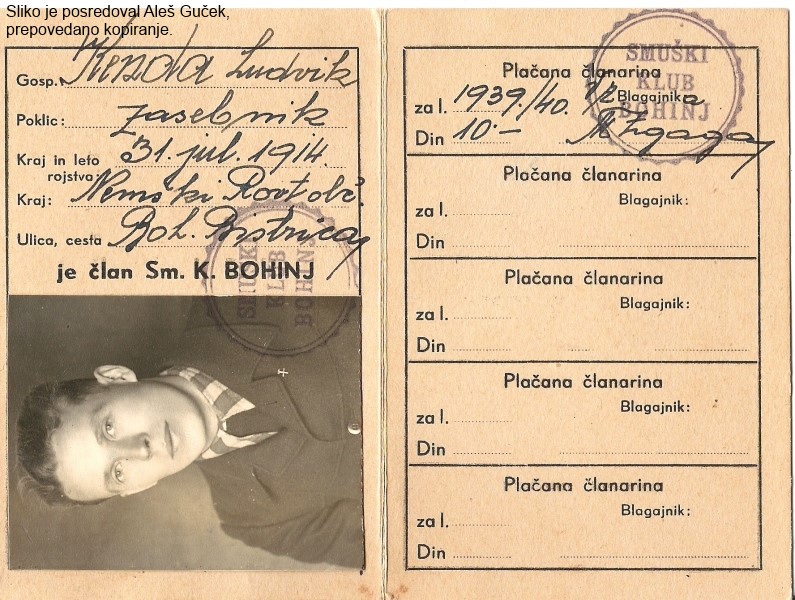 Sliko je posredoval Aleš Guček,
prepovedano kopiranje.
Gosp. Kenda Ludvik
Poklic: zasebnik
Kraj in leto rojstva: 31. jul. 1914.
Kraj: Nemški Rovt obč.
Ulica, cesta Boh. Bistrica
je član Sm. K. BOHINJ
SMUŠKI
KLUB
BOHINJ
Plačana članarina
za l. 1939./40. Blagajnika
Din 10.- M Zgaga
SMUŠKI
KLUB
BOHINJ
Plačana članarina
Blagajnik:
za l.
Din
Plačana članarina
Blagajnik:
za l.
Din
Plačana članarina
Blagajnik:
za l.
Din
Plačana članarina
Blagajnik:
za l.
Din